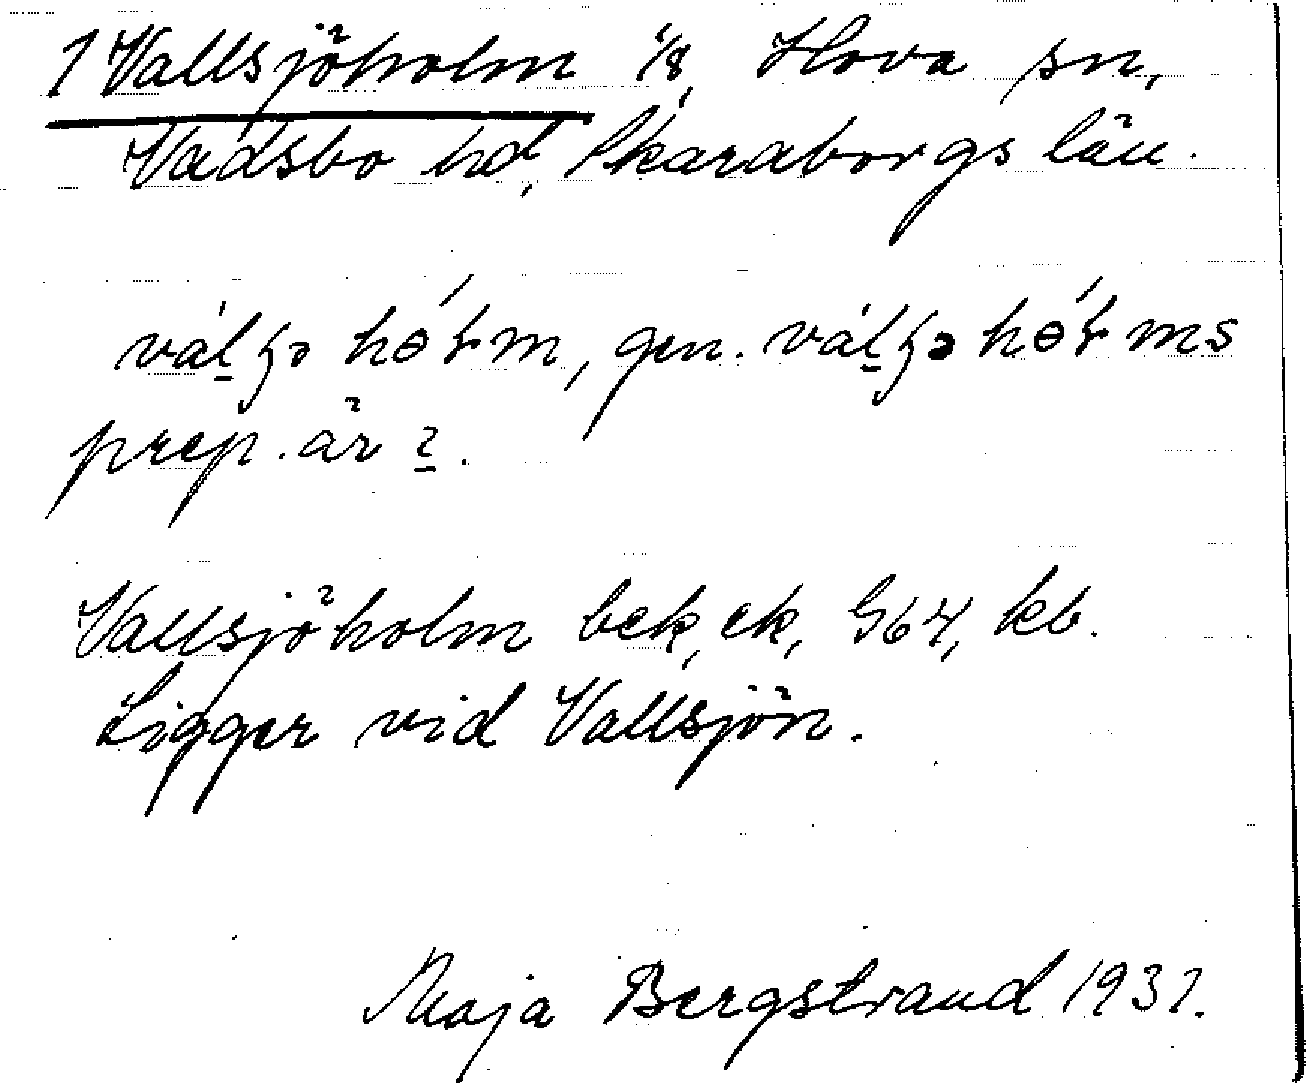 1 Vallsjöholm 1/8, Hova sn,
Vadsbo hd, Skaraborgs län.
gen.
prep. är
Vallsjöholm bek, ek, G64, kb.
Ligger vid Vallsjön.
Maja Bergstrand 1931.